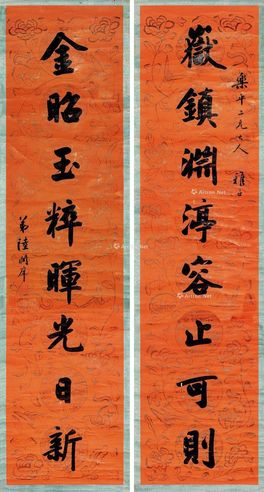 樂平二兄大人雅正
嶽鎮淵渟容止可則
金昭玉粹暉光日新
弟陸潤庠